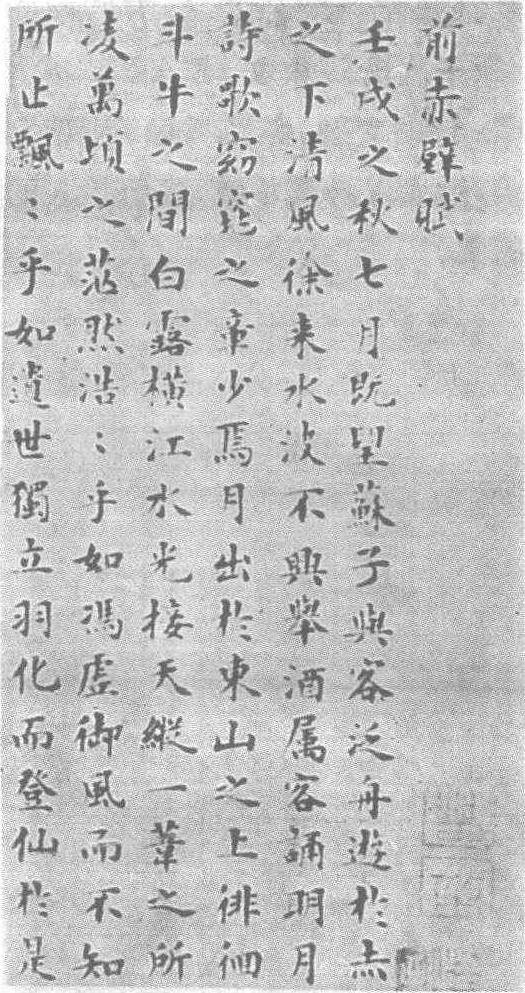 前赤壁賦
壬戌之秋七月既望蘇子與客泛舟遊於赤
之下清風徐来水波不興舉酒属客誦明月
詩歌窈窕之章少焉月出於東山之上徘徊
斗牛之間白露横江水光接天縱一葦之所
凌萬頃之茫然浩〻乎如馮虛御風而不知
所止飄〻乎如遺世獨立羽化而登仙於是